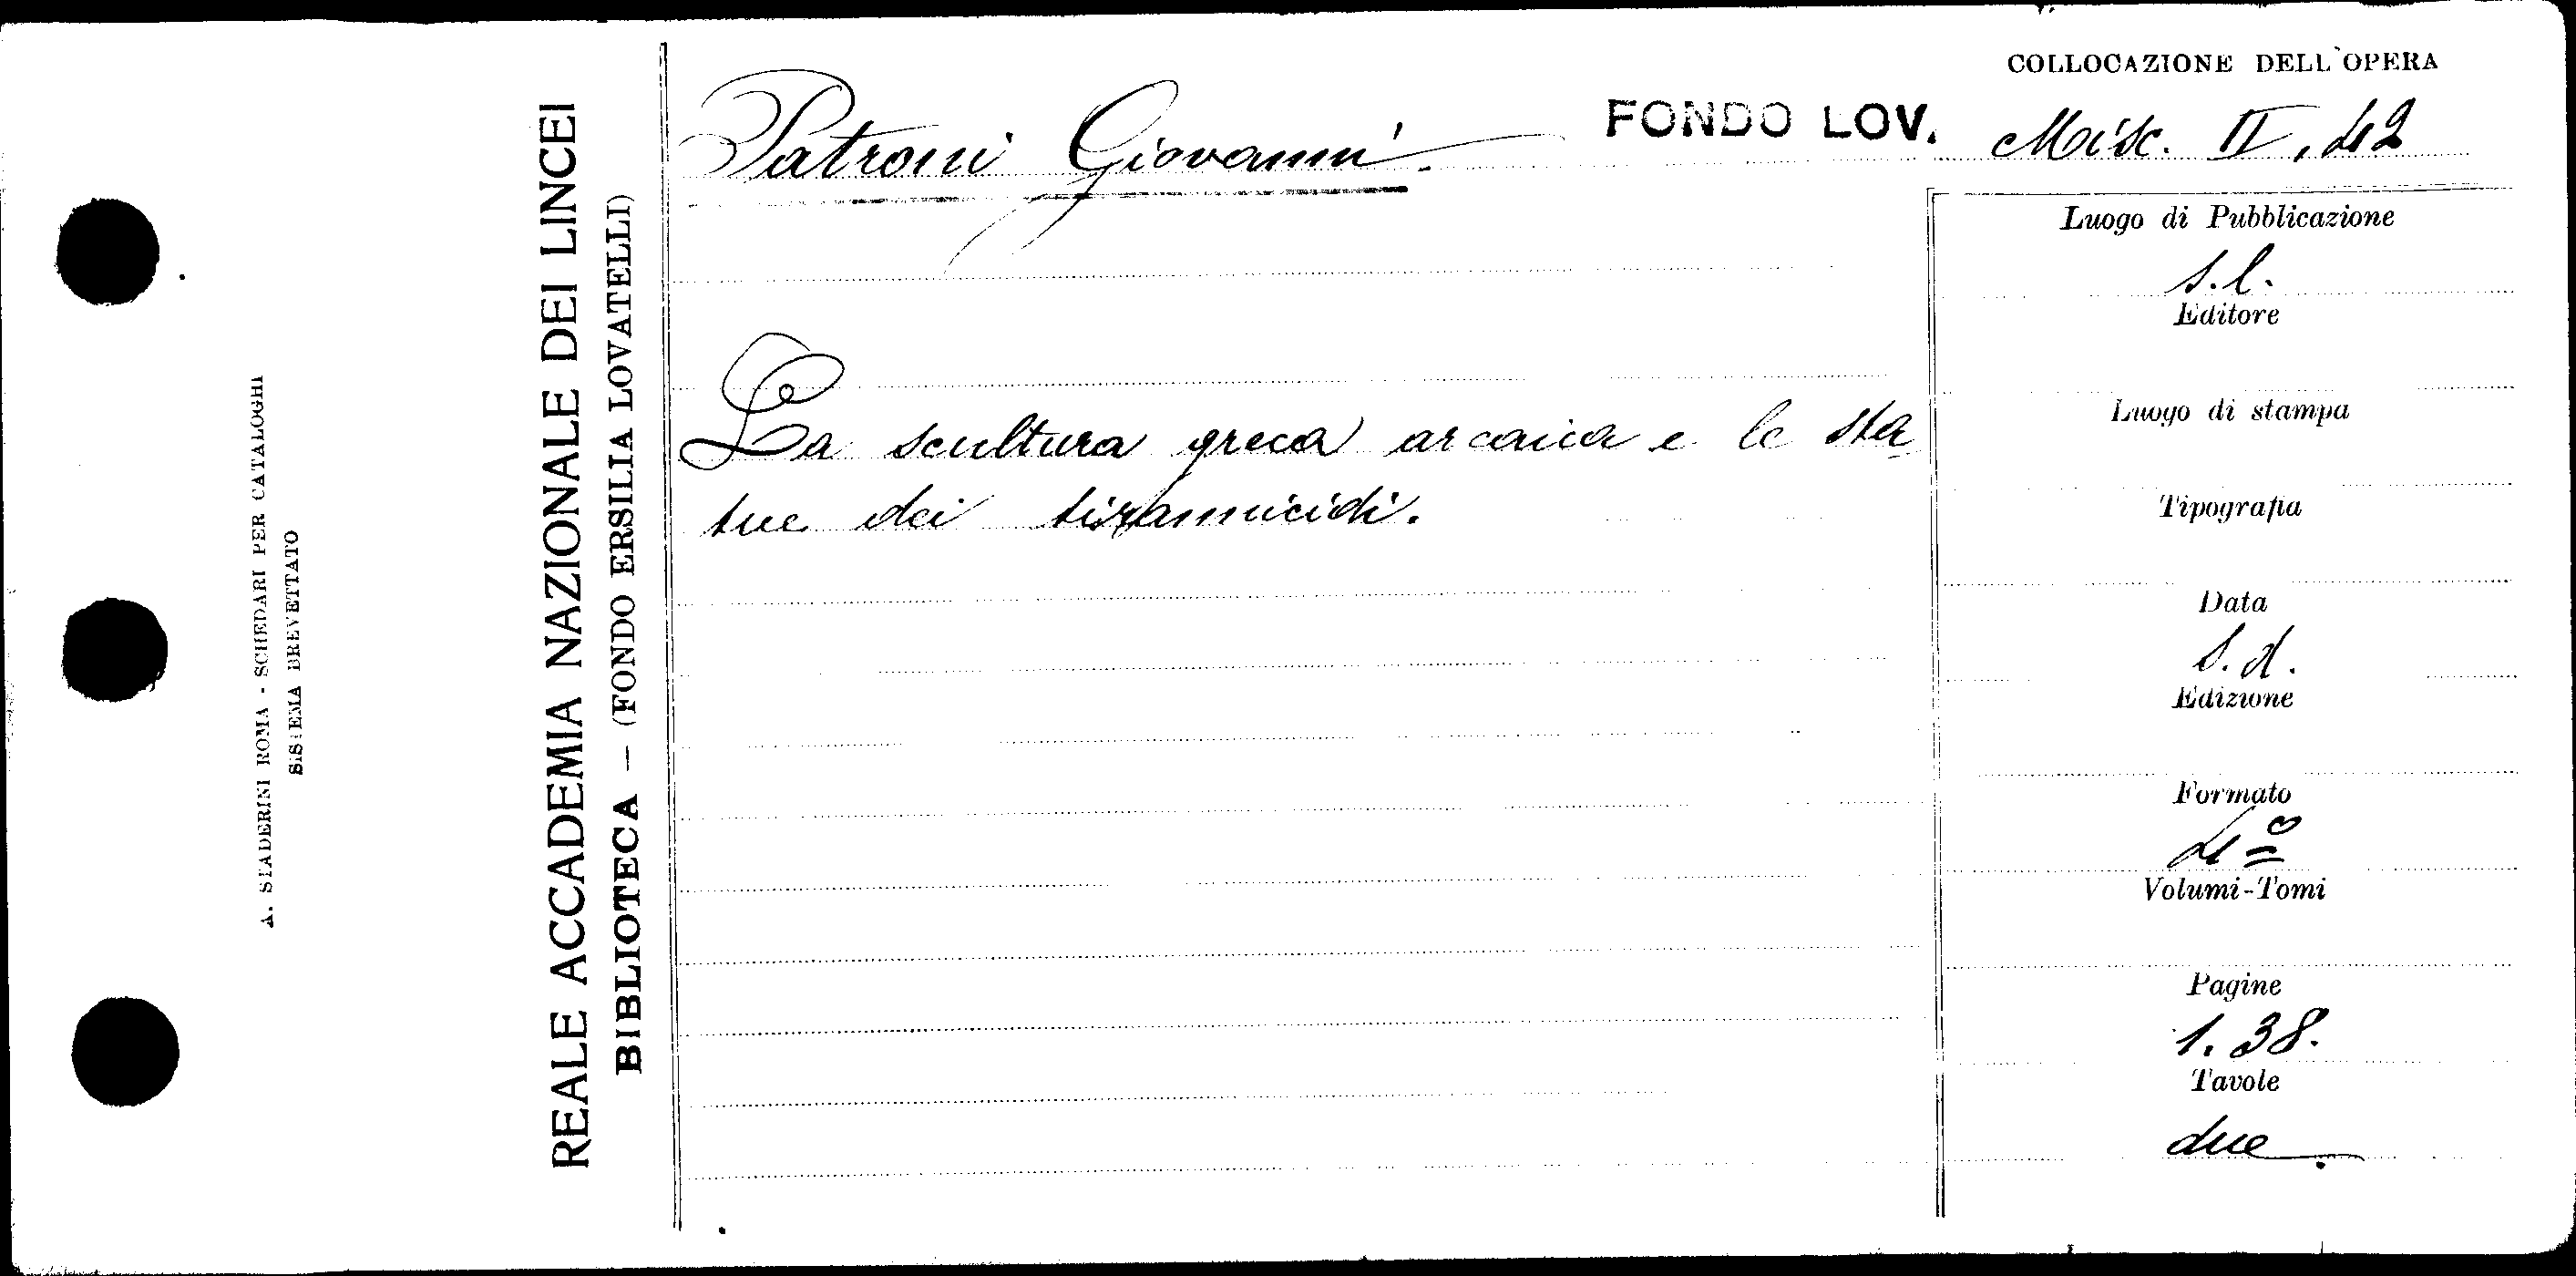 A. STADERINI ROMA - SCHEDARI PER CATALOGHI
SISTEMA BREVETTATO
REALE ACCADEMIA NAZIONALE DEI LINCEI
BIBLIOTECA – (FONDO ERSILIA LOVATELLI)
COLLOCAZIONE DELL'OPERA
Patroni Giovanni. FONDO LOV. Misc. II, 42
La scultura greca arcaica e le sta-
tue dei tirannicidi.
Luogo di Pubblicazione
s.l.
Editore
Luogo di stampa
Tipografia
Data
S.d.
Edizione
Formato
4º
Volumi-Tomi
Pagine
1.38.
Tavole
due.